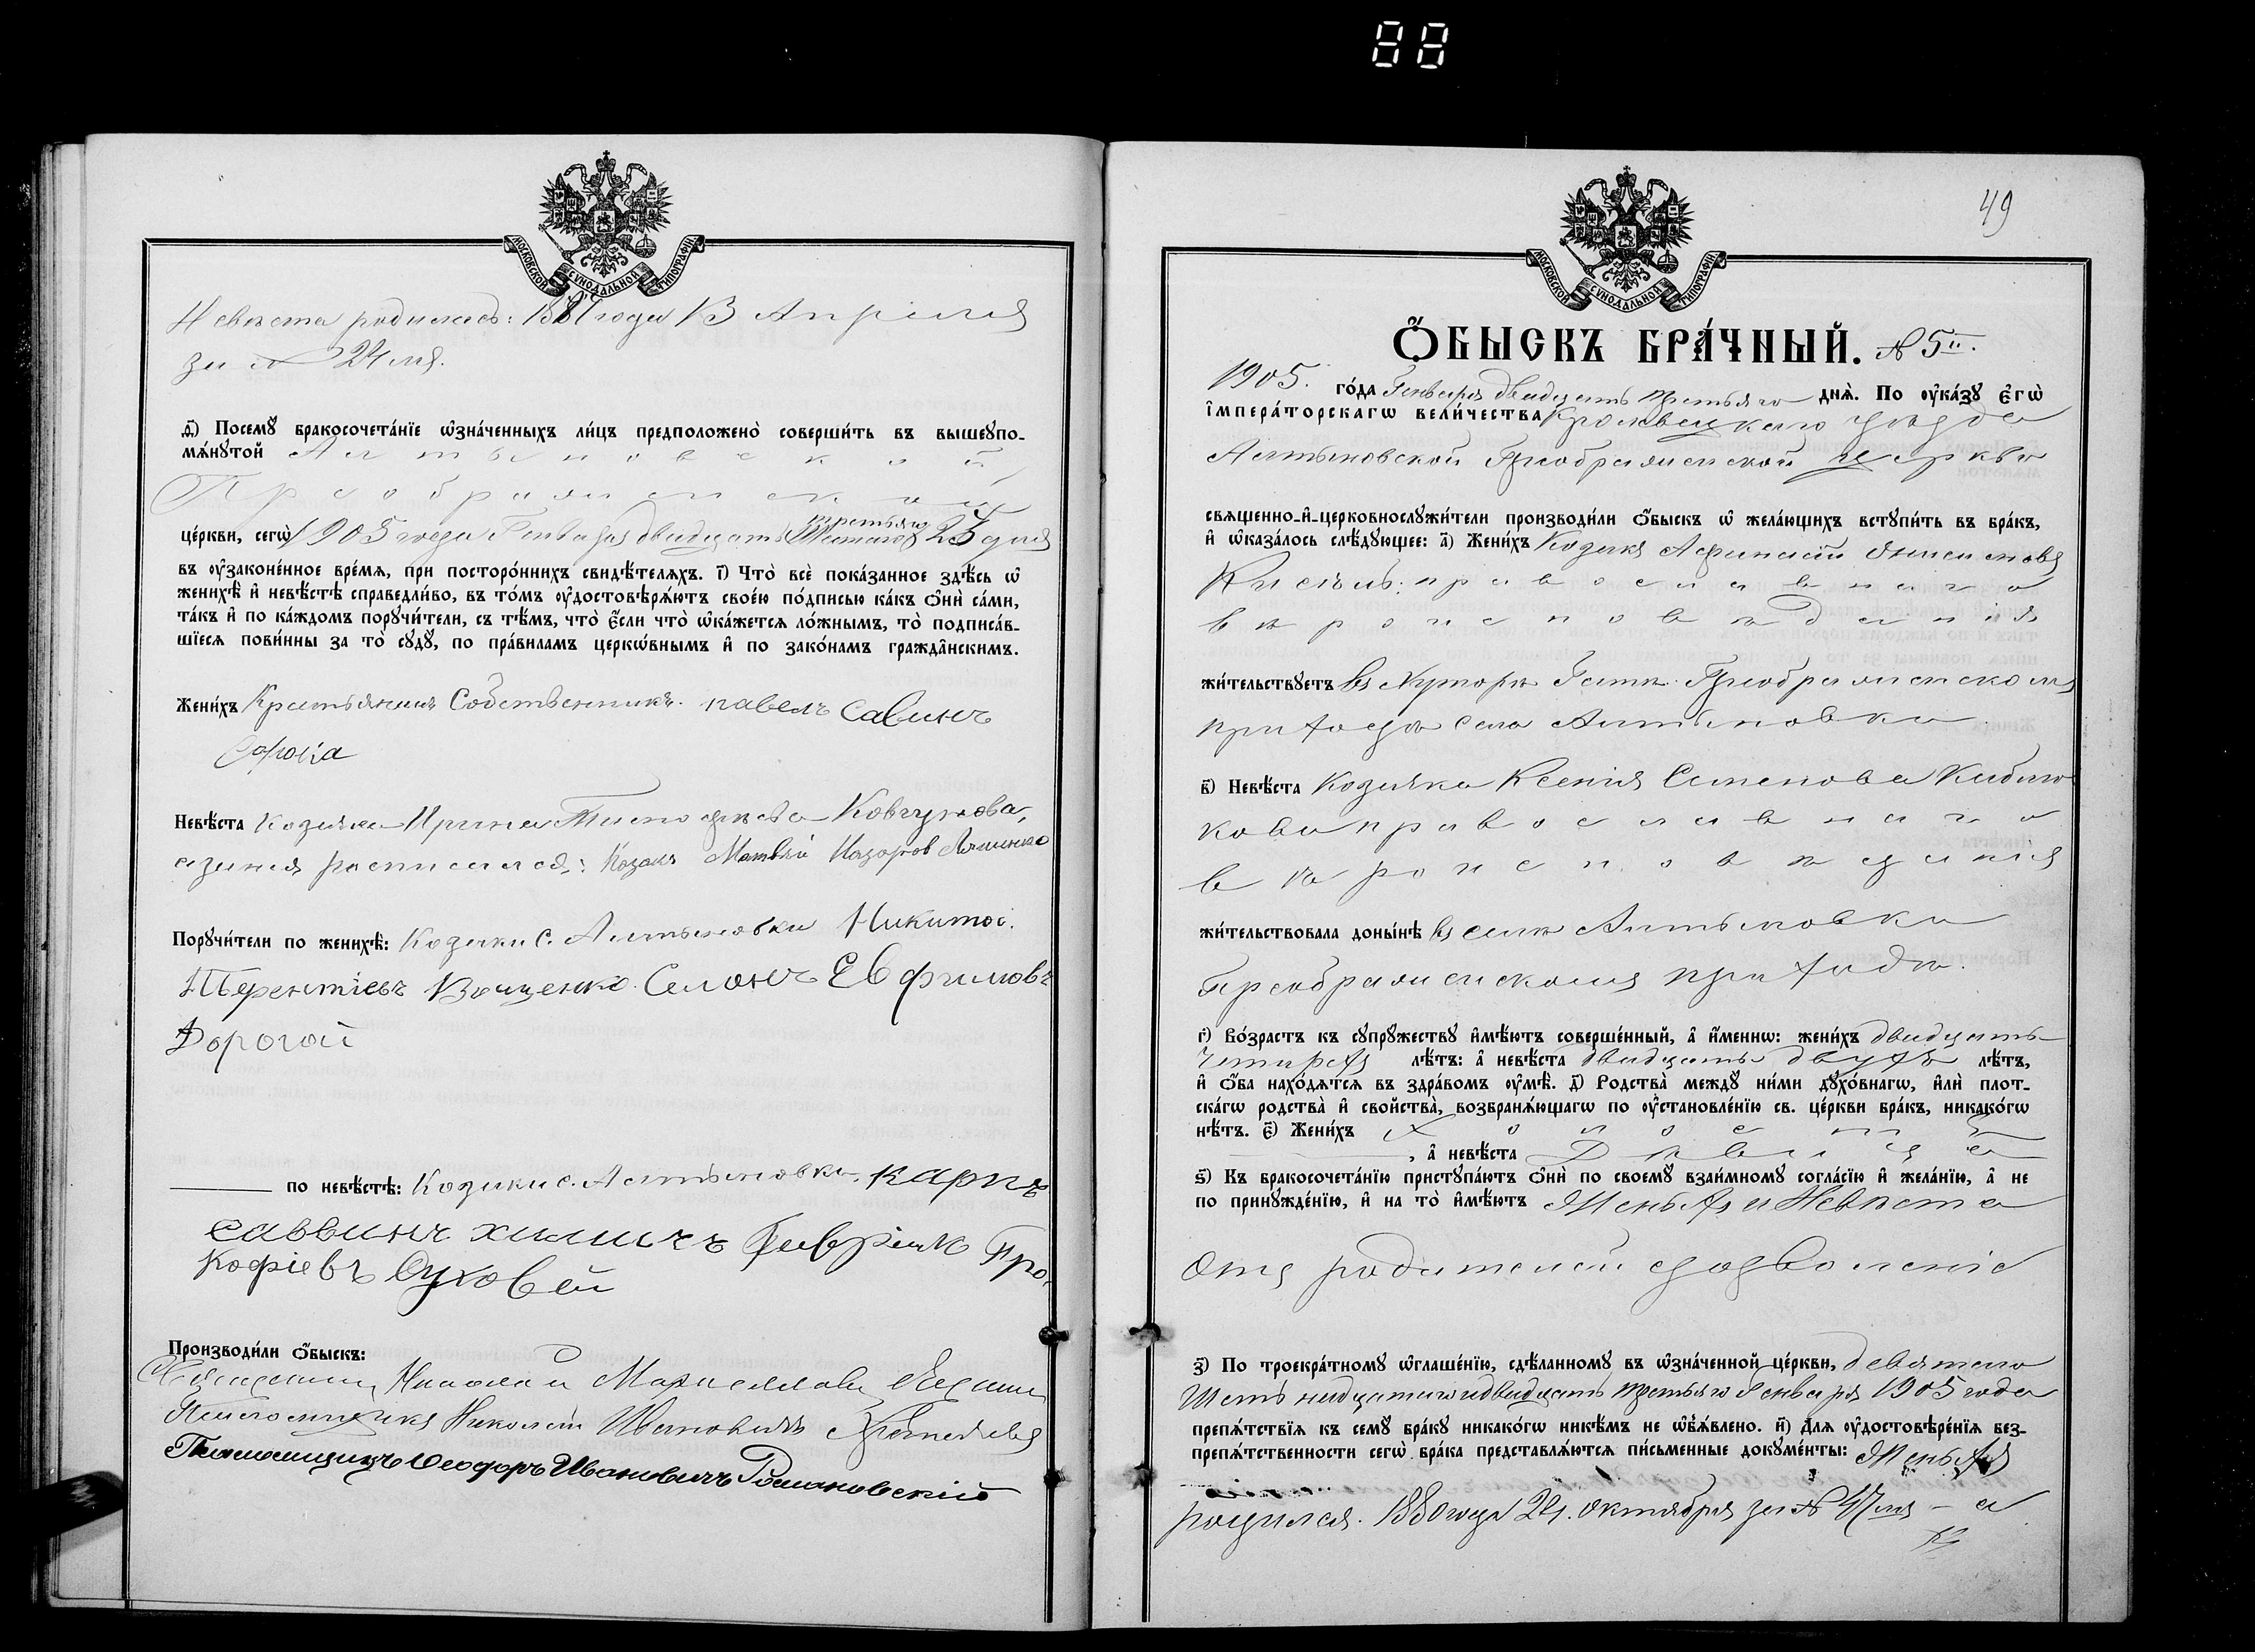 88
МОСКОВСКОЙ СѴНОДАЛЬНОЙ ТИПОГРАФІИ
Невѣста родилась: 1881 года 13 Апрѣля
за № 24мъ.
д҃) Посемꙋ̀ бракосочета́нїе ѡ҆зна́ченныхъ ли́цъ предположено̀ соверши́ть въ вышеꙋпо-
мѧ́нꙋтой Алтыновской
Преображенской
це́ркви, сегѡ̀ 1905 года Генваря двадцать третьяго 23 дня
въ ᲂу҆законе́нное вре́мѧ, при посторо́ннихъ свидѣ́телѧхъ. і҃) Что̀ всѐ пока́занное здѣ́сь ѡ҆
женихѣ̀ и҆ невѣ́стѣ справедли́во, въ то́мъ ᲂу҆достовѣрѧ́ютъ свое́ю по́дписью ка́къ ѻ҆нѝ са́ми,
та́къ и҆ по ка́ждомъ порꙋчи́тели, съ тѣ́мъ, что̀ є҆́сли что̀ ѡ҆ка́жетсѧ ло́жнымъ, то̀ подписа́в-
шїесѧ пови́нны за то̀ сꙋдꙋ̀, по пра́виламъ церкѡ́внымъ и҆ по зако́намъ гражда̂нскимъ.
Жени́хъ Крестьянинъ Собственникъ. павелъ Савинъ
Сорока
Невѣ́ста Козачка Ирина Тимофѣева Ковчунова,
а за нея росписался: Козакъ Матвѣй Назаров
Порꙋчи́тели по женихѣ̀: Козаки с. Алтыновки Никита
Терентіевъ Ващенко. Самонъ Евфимовъ
Дорогой
по невѣ́стѣ: Козаки с. Алтыновки. карпъ
саввинъ химичъ Гаврішъ Про-
кофіевъ Суховѣй
Производи́ли ѻ҆́быскъ:
Священникъ Николай
Псаломщикъ Николай Ивановичъ
Псаломщикъ Ѳеодоръ Ивановичъ Романовскій
49
МОСКОВСКОЙ СѴНОДАЛЬНОЙ ТИПОГРАФІИ
Ѻ҆́БЫСКЪ БРА́ЧНЫЙ. № 5й.
1905. го́да Генваря двадцать третьяго днѧ̀. По ᲂу҆ка́зꙋ є҆гѡ̀
і҆мпера́торскагѡ вели́чества Кролевецкаго уѣзда
Алтыновской Преображенской церкви
свѧщенно-и҆-церковнослꙋжи́тели производи́ли ѻ҆́быскъ ѡ҆ жела́ющихъ встꙋпи́ть въ бра́къ,
и҆ ѡ҆каза́лось слѣ́дꙋющее: а҃) Жени́хъ Козакъ Афанасій Онисимовъ
Кисель: православнаго
вѣроисповѣданія
жи́тельствꙋетъ въ Хуторѣ Преображенскомъ
приходѣ села Алтыновки.
в҃) Невѣ́ста Козачка Ксенія Семенова
кова православнаго
вѣроисповѣданія
жи́тельствовала доны́нѣ въ селѣ Алтыновки
Преображенскомъ приходѣ.
г҃) Во́зрастъ къ сꙋпрꙋ́жествꙋ и҆мѣ́ютъ соверше́нный, а҆ и҆́меннѡ: жени́хъ двадцать
четырехъ лѣ́тъ: а҆ невѣ́ста двадцать двухъ лѣ́тъ,
и҆ ѻ҆́ба нахо́дѧтсѧ въ здра́вомъ ᲂу҆мѣ̀. д҃) Родства̀ междꙋ̀ ни́ми дꙋхо́внагѡ, и҆лѝ плот-
ска́гѡ родства̀ и҆ свойства̀, возбранѧ́ющагѡ по ᲂу҆становле́нїю св. це́ркви бра́къ, никако́гѡ
нѣ́тъ. є҃) Жени́хъ Холостъ
, а҆ невѣ́ста Дѣвица
ѕ҃) Къ бракосочета́нїю пристꙋпа́ютъ ѻ҆нѝ по своемꙋ̀ взаи́мномꙋ согла́сїю и҆ жела́нїю, а҆ не
по принꙋжде́нїю, и҆ на то̀ и҆мѣ́ютъ Женихъ и Невѣста
Отъ родителей дозволеніе
з҃) По троекра́тномꙋ ѡ҆глаше́нїю, сдѣ́ланномꙋ въ ѡ҆зна́ченной це́ркви, девятаго
шестьнадцатаго и двадцать третьяго Генваря 1905 года
препѧ́тствїѧ къ семꙋ̀ бра́кꙋ никако́гѡ никѣ́мъ не ѡ҆б̾ѧ́влено. и҃) Для ᲂу҆достовѣре́нїѧ без-
препѧ́тственности сегѡ̀ бра́ка представлѧ́ютсѧ пи́сьменные докꙋме́нты: Женихъ
родился. 1880 года 24. Октября за № 47мъ - а